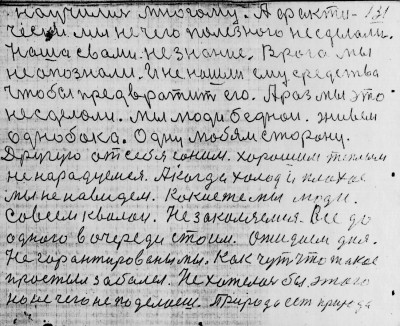 научились многому. А факти- 131
чески мы нечего полезного несделали.
Наша свами. незнание. Врага мы
неопознали. И не нашли ему средства
чтобы предвратит его. А раз мы это
несделали. мы люди бедной. живем
однобока. Одну любям сторону.
Другую от себя гоним. хорошим теплым
ненарадуемся. А когда холод и плохое
мы не навидем. Какие же мы люди.
совсем кволои. Не закаляемся. Все до
одного в очереди стоим. Ожидаем дня.
Не гарантированы мы. Как чут что такое
простыл заболел. Не хотелас бы этого
но не чего не поделаеш. Природа ест природа